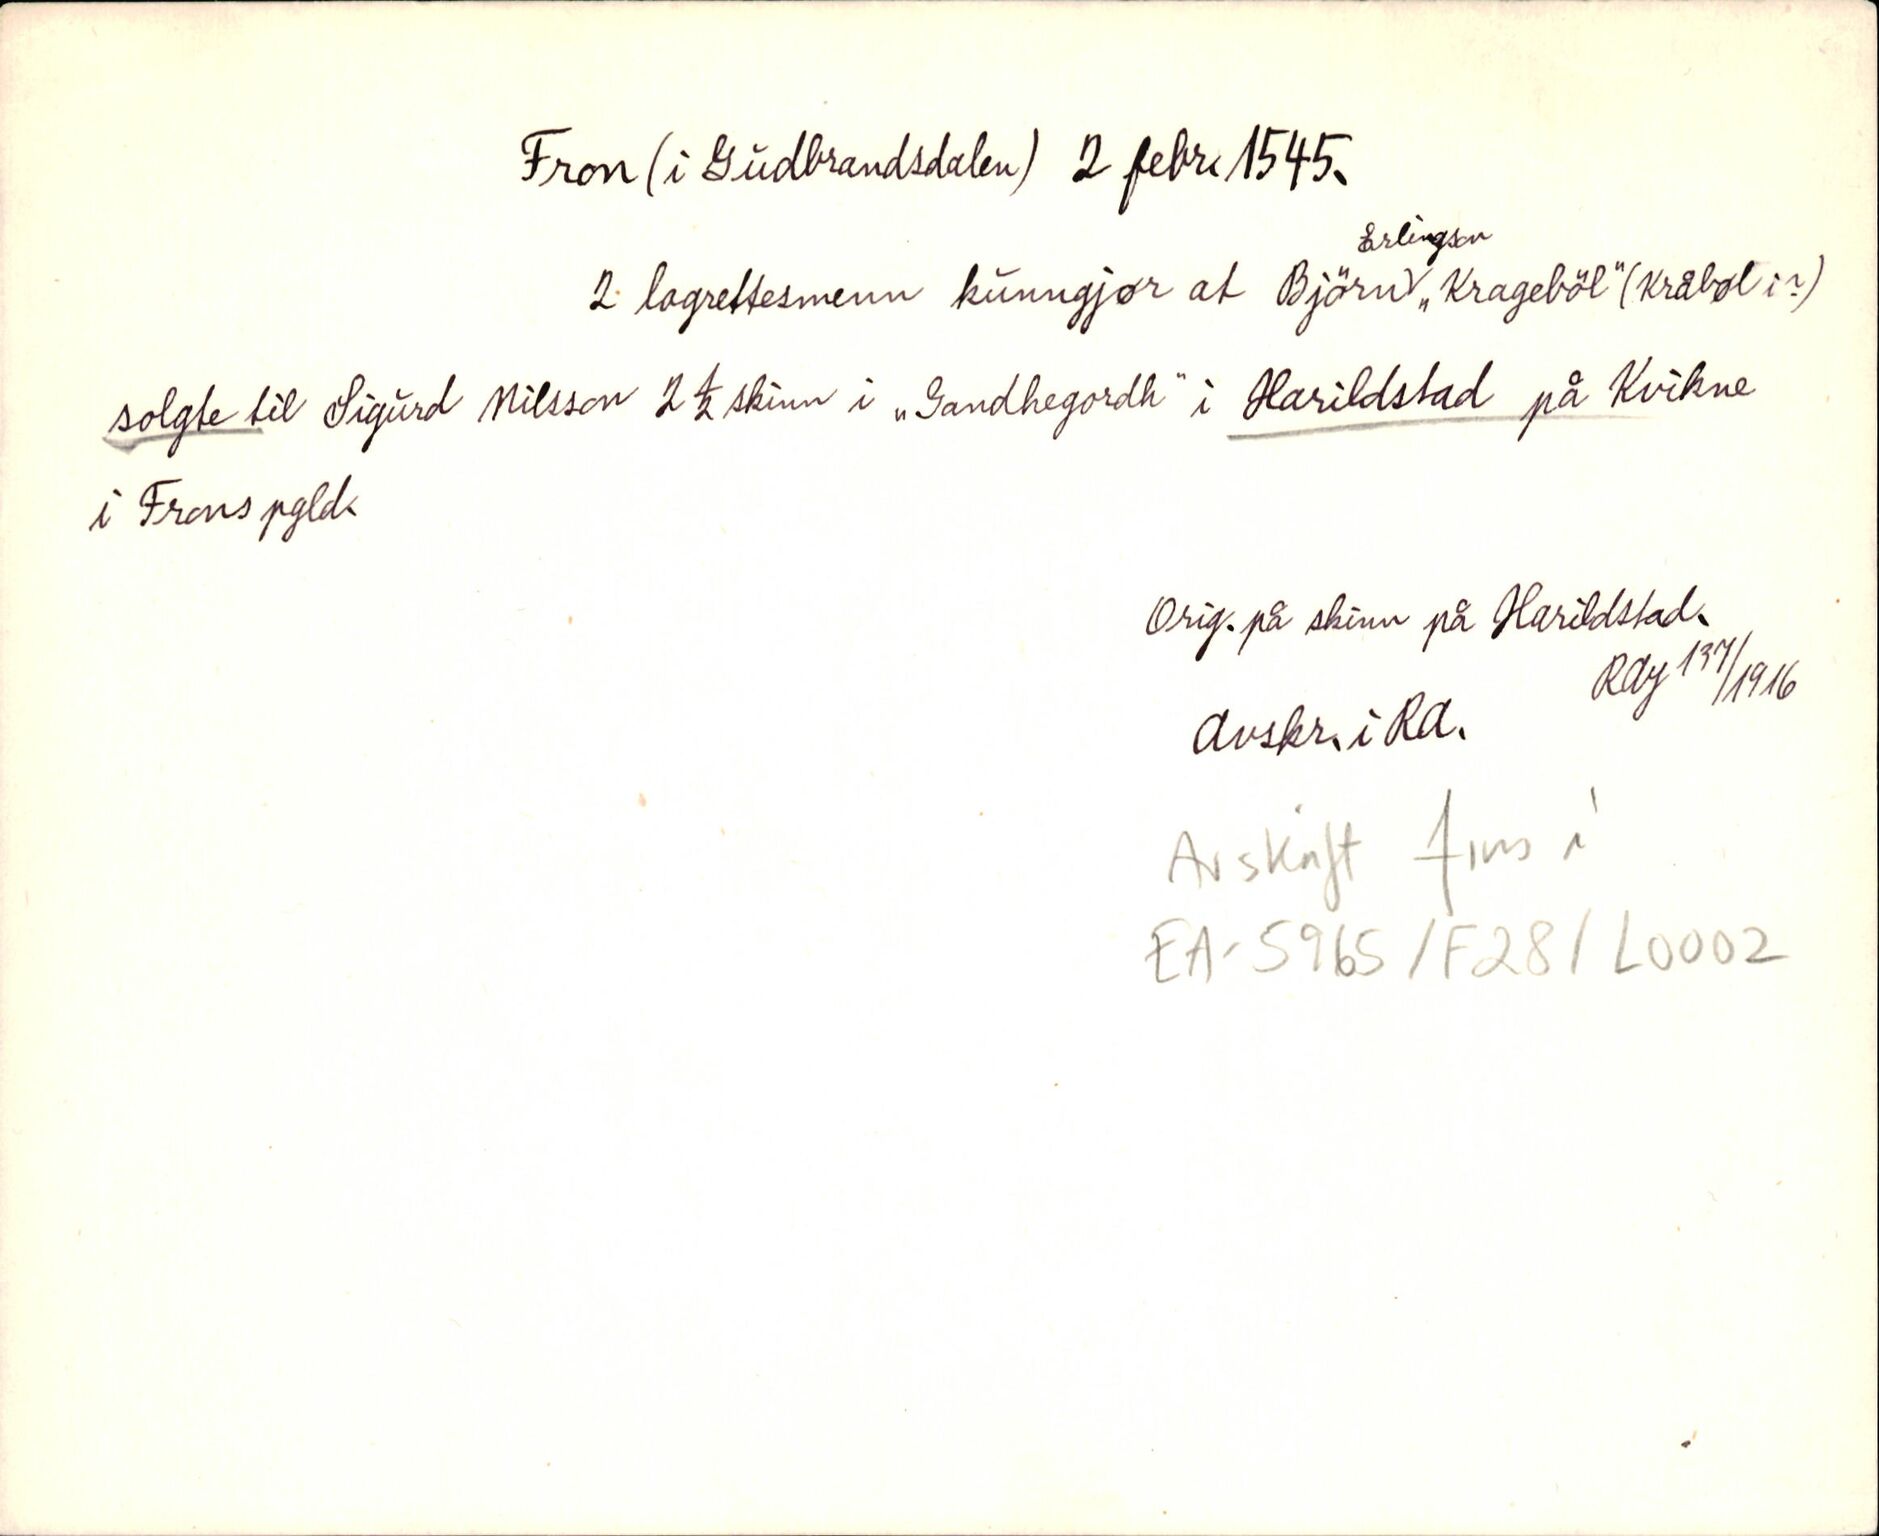 Fron (i Gudbrandsdalen) 2 febr. 1545.
Erlingson
2 lagrettesmenn kunngjør at Björn „Krageböl" (Kråbøl i ?)
solgte til Sigurd Nilsson 2 1/2 skinn i „Gandhegordh" i Harildstad på Kvikne
i Frons pgld.
Orig. på skinn på Harildstad.
137/1916
Avskr. i RA.
Avskrift fins i
EA-5965/F28/L0002